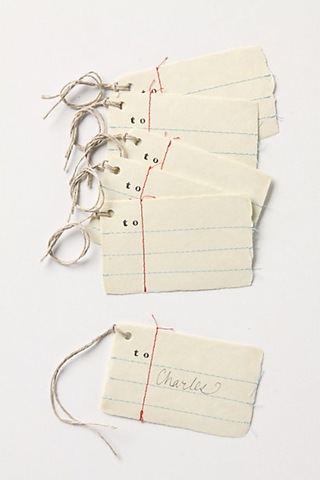 to
to
to
to
to
to
Charles